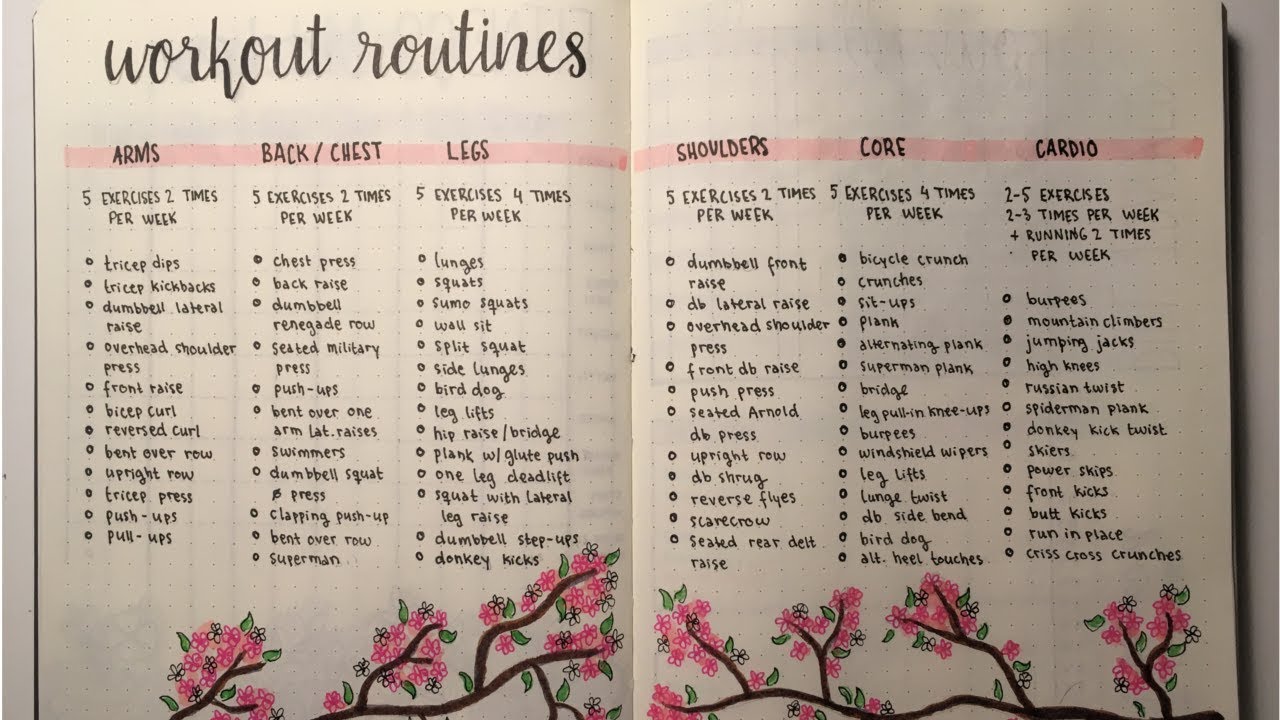 workout routines
ARMS
5 EXERCISES 2 TIMES
PER WEEK
tricep dips
tricep kickbacks
dumbbell lateral
raise
overhead shoulder
press
front raise
bicep curl
reversed curl
bent over row
upright row
tricep press
push-ups
pull-ups
BACK / CHEST
5 EXERCISES 2 TIMES
PER WEEK
chest press
back raise
dumbbell
renegade row
seated military
press
push-ups
bent over one
arm lat. raises
swimmers
dumbbell squat
press
clapping push-up
bent over row
superman
LEGS
5 EXERCISES 4 TIMES
PER WEEK
lunges
squats
sumo squats
wall sit
split squat
side lunges
bird dog
leg lifts
hip raise/bridge
plank w/ glute push
one leg deadlift
squat with lateral
leg raise
dumbbell step-ups
donkey kicks
SHOULDERS
5 EXERCISES 2 TIMES
PER WEEK
dumbbell front
raise
db lateral raise
overhead shoulder
press
front db raise
push press
seated Arnold
db press
upright row
db shrug
reverse flyes
scarecrow
seated rear delt
raise
CORE
5 EXERCISES 4 TIMES
PER WEEK
bicycle crunch
crunches
sit-ups
plank
alternating plank
superman plank
bridge
leg pull-in knee-ups
burpees
windshield wipers
leg lifts
lunge twist
db side bend
bird dog
alt. heel touches
CARDIO
2-5 EXERCISES
2-3 TIMES PER WEEK
+ RUNNING 2 TIMES
PER WEEK
burpees
mountain climbers
jumping jacks
high knees
russian twist
spiderman plank
donkey kick twist
skiers
power skips
front kicks
butt kicks
run in place
criss cross crunches